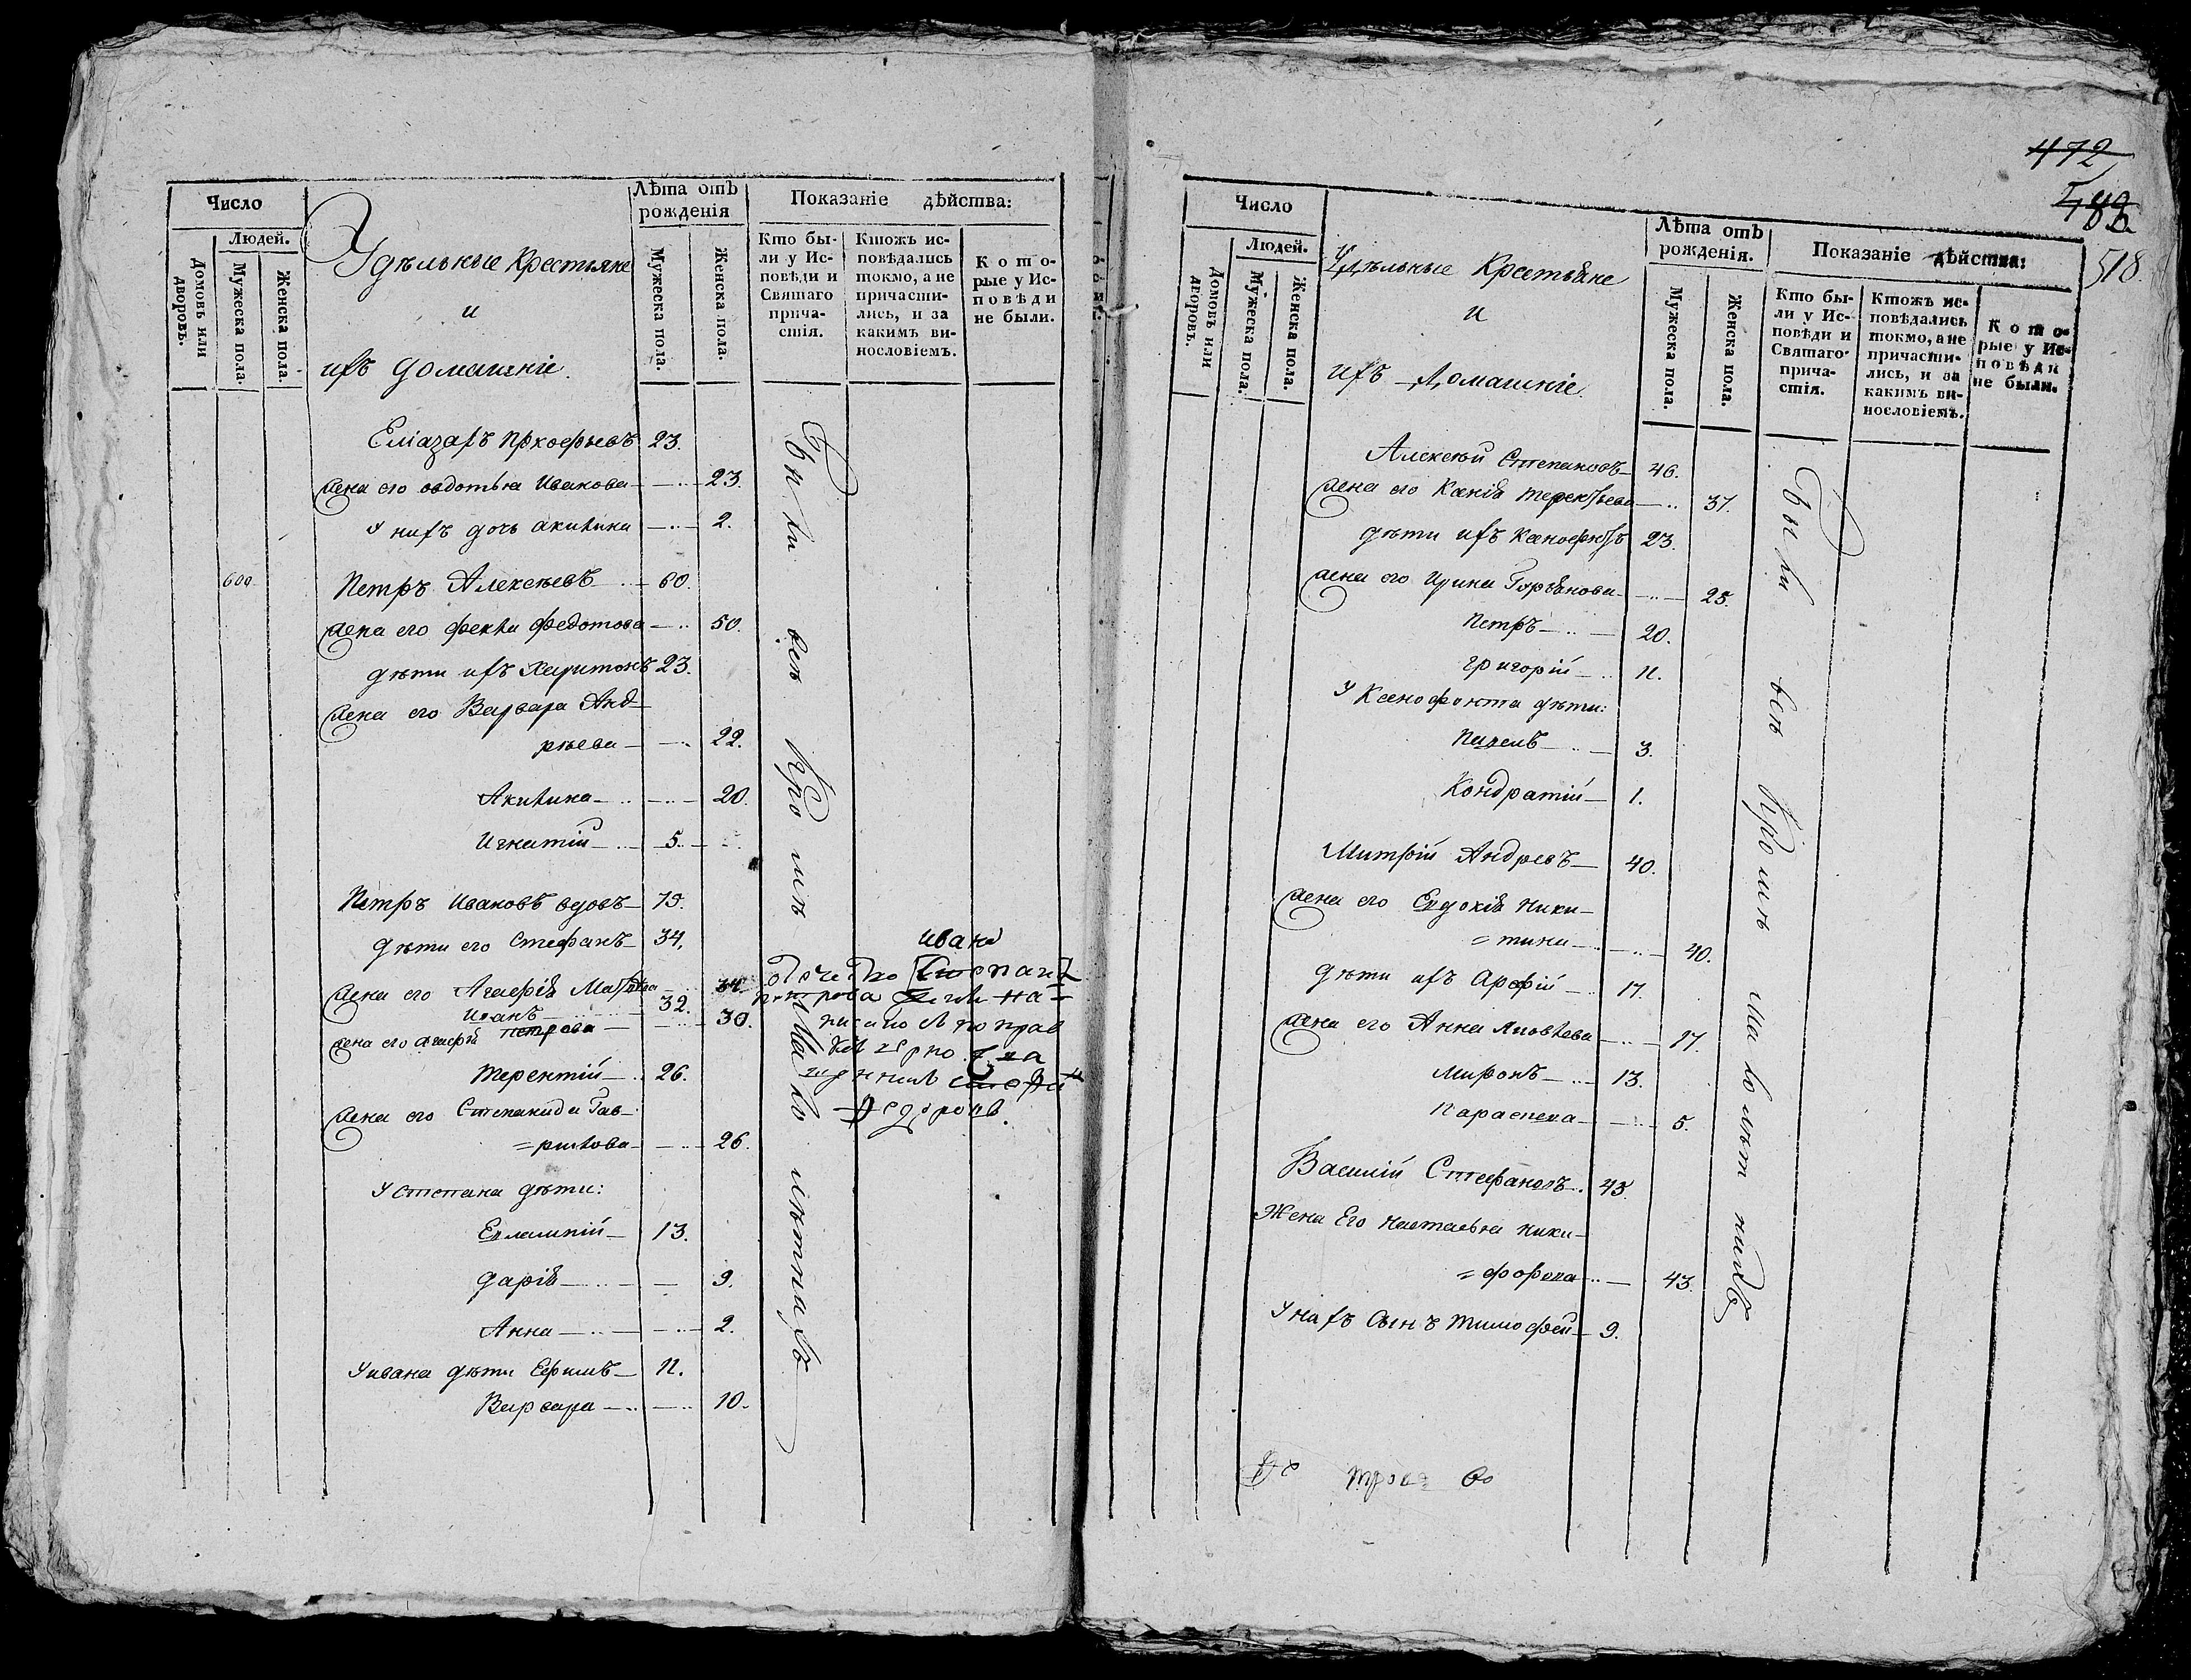 Число
Людей.
Домовъ или дворовъ.
Мужеска пола.
Женска пола.
Удѣльные Крестьяне
и
ихъ домашніе
Лѣта отъ
рожденія
Мужеска пола.
Женска пола.
Показаніе дѣйства:
Кто бы-
ли у Ис-
повѣди и
Святаго
прича-
стія.
Ктожъ ис-
повѣдались
токмо, а не
причасти-
лись, и за
какимъ ви-
нословіемъ.
Кото-
рые у Ис-
повѣди
не были.
Еліазаръ Пркофьевъ 23.
Жена его овдотья Иванова 23.
У нихъ дочь акилина 2.
600 Петръ Алексѣевъ 60.
Жена его фекла Федотова 50.
дѣти ихъ Харитонъ 23.
Жена его Варвара Анд-
рѣева 22.
Акилина 20.
Игнатій 5
Петръ Ивановъ вдовъ 75.
дѣти его Стефанъ 34.
Жена его Агафія 34.
Иванъ 32.
Жена его Агафія петрова 30.
Терентій 26.
Жена его Степанида Гав-
=рилова 26.
У Степана дѣти:
Евлампій 13.
дарія 9.
Анна 2.
У ивана дѣти Ефимъ 11.
Варвара 10.
Были всѣ Кромѣ Малолѣтнихъ
ивана
петрова на=
писано
Федоровъ.
472
518.
Число
Людей.
Домовъ или дворовъ.
Мужеска пола.
Женска пола.
Удѣльные Крестьяне
и
ихъ Домашніе
Лѣта отъ
рожденія.
Мужеска пола.
Женска пола.
Показаніе дѣйства:
Кто бы-
ли у Ис-
повѣди и
Святаго
прича-
стія.
Ктожъ ис-
повѣдались
токмо, а не
причасти-
лись, и за
какимъ ви-
нословіемъ.
Кото-
рые у Ис-
повѣди
не были.
Алексѣй Степановъ 46.
Жена его Ксенія терентьева 37.
дѣти ихъ Ксенофнтъ 23.
Жена его Ирина 25.
Петръ 20.
григорій 11.
У Ксенофонта дѣти:
Павелъ 3.
Кондратій 1.
Митрій Андревъ 40.
Жена его Евдокія Ники-
=тина 40.
дѣти ихъ Арефій 17.
Жена его Анна Яковлева 17.
Миронъ 13.
Параскева 5.
Василій Стефановъ 43.
Жена Его настасья ники-
=форова 43.
У нахъ Сынъ Тимофей 9.
Были всѣ Кромѣ малолѣтнихъ